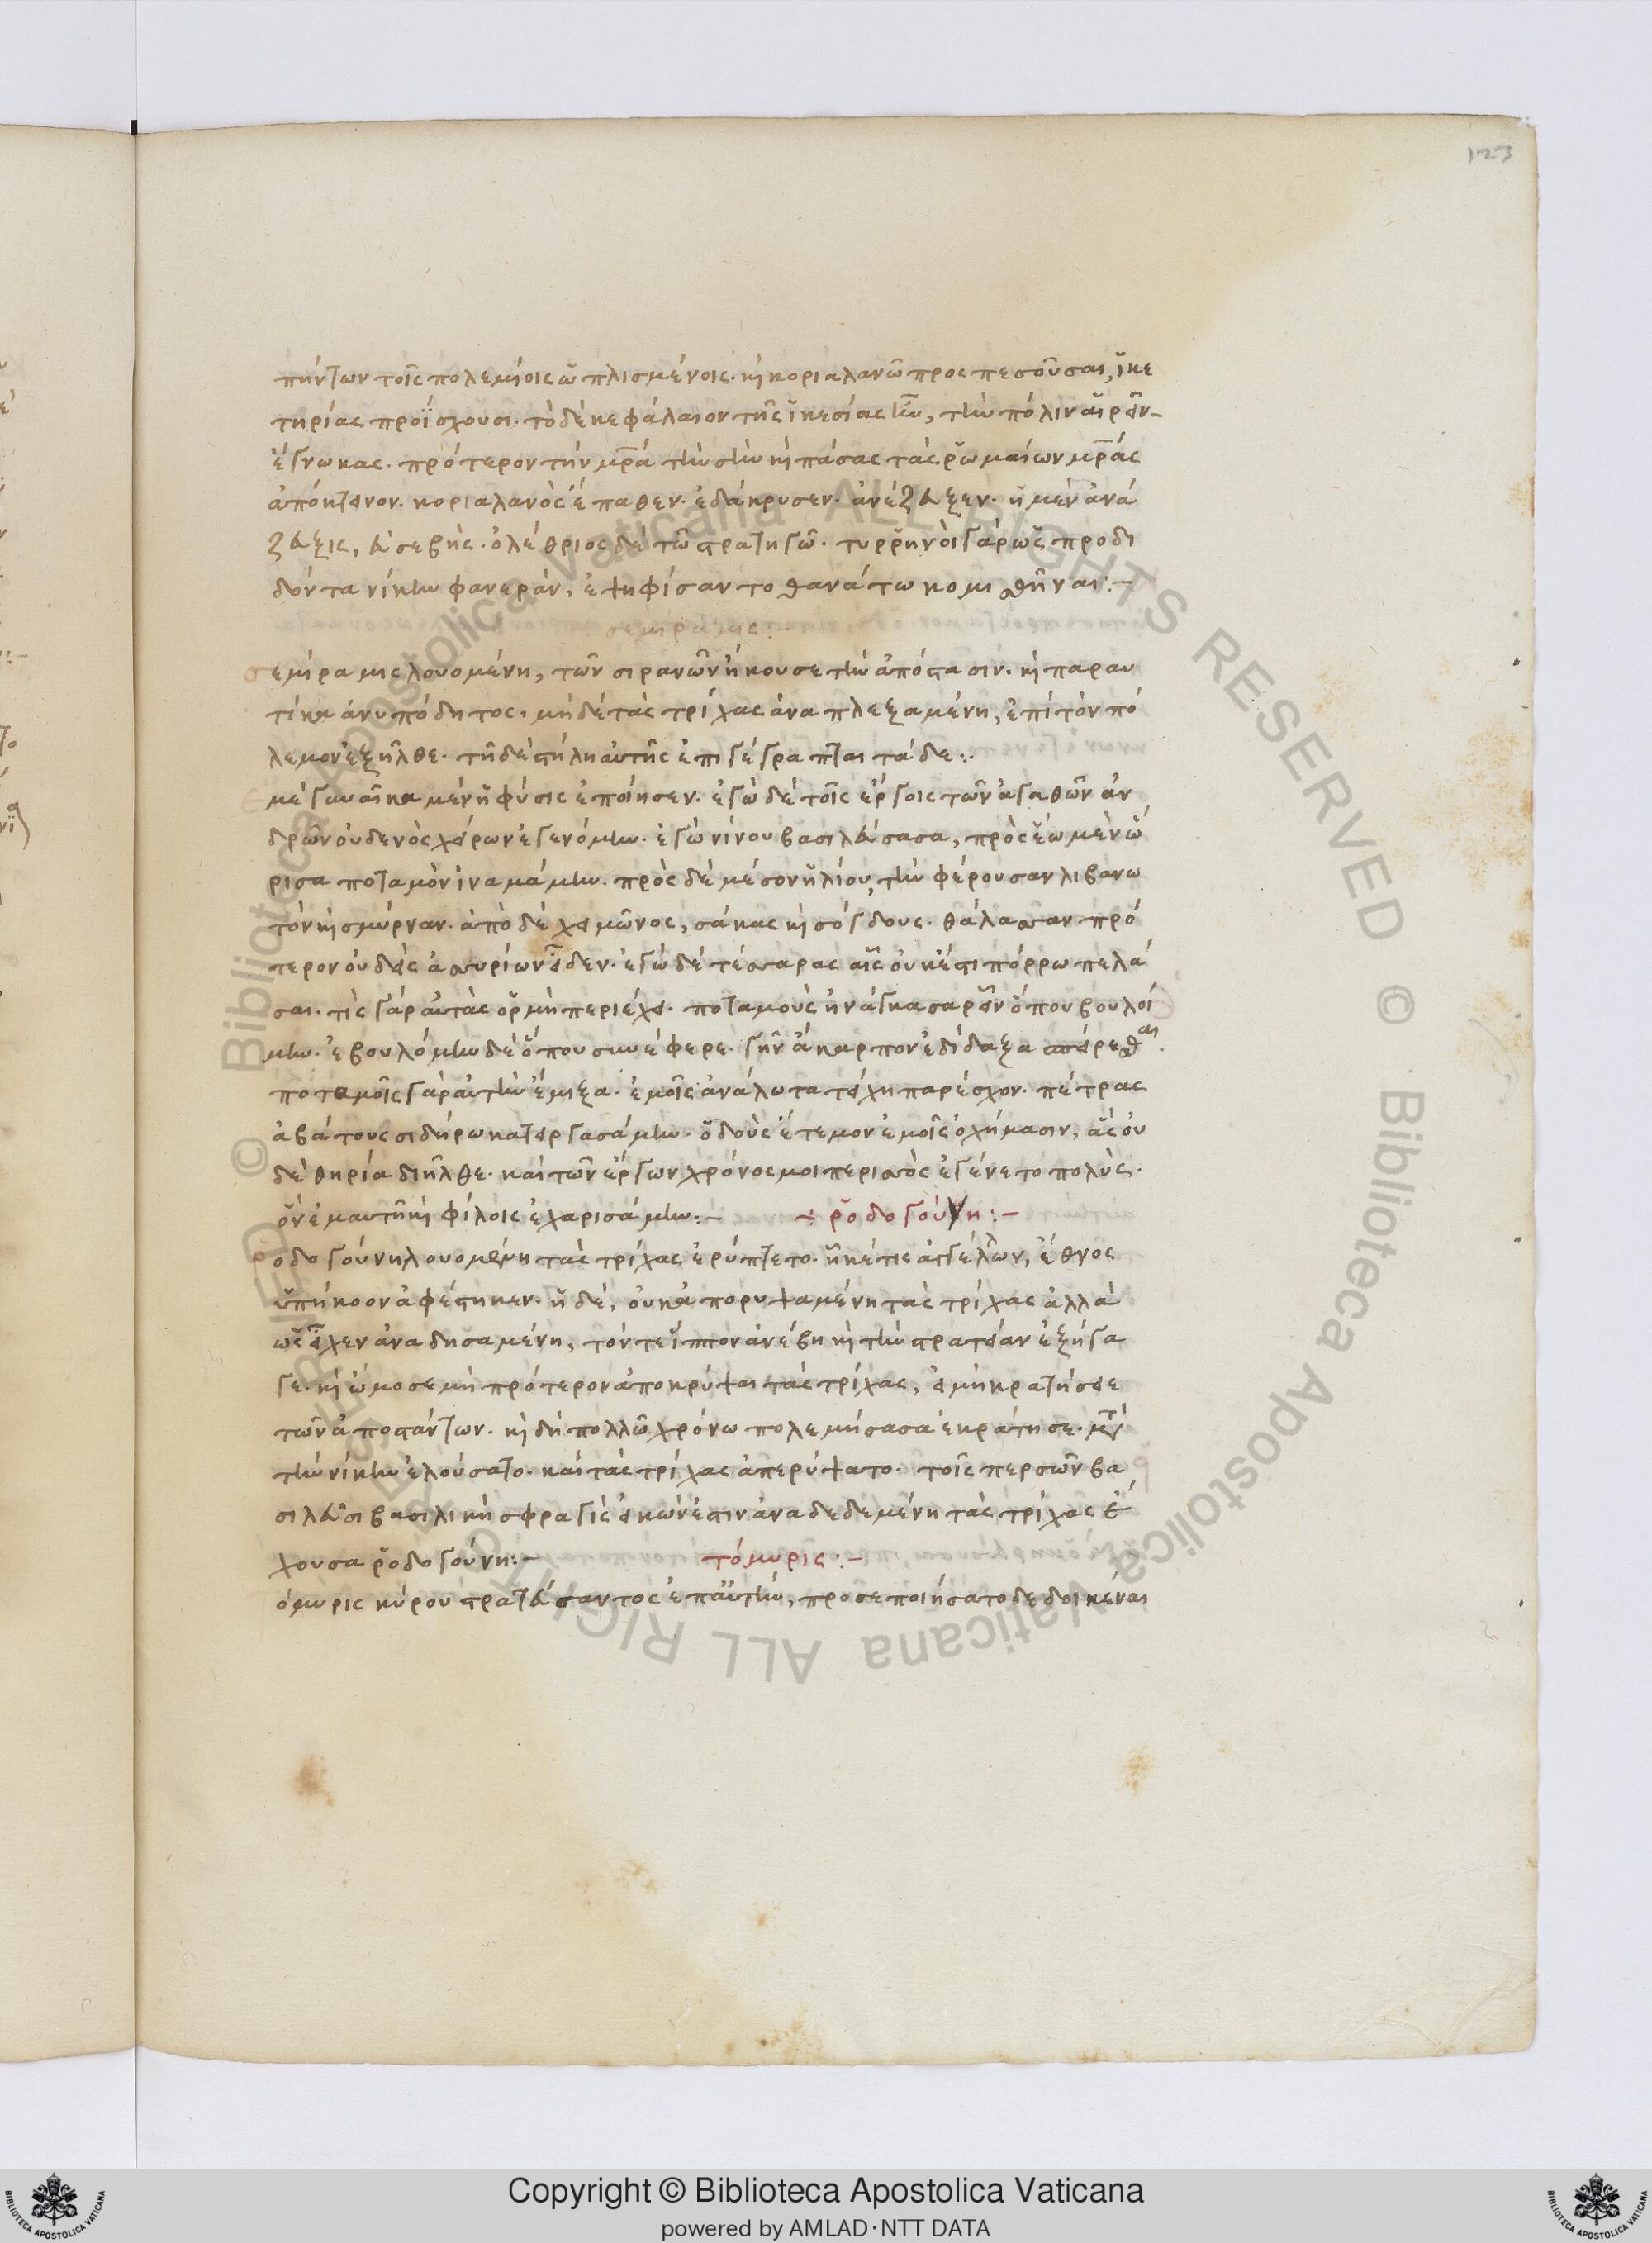 123
πήντων τοῖς πολεμίοις ὡπλισμένοις. καὶ κοριαλανῶ προσπεσοῦσαι, ἱκε
τηρίας προΐσχουσι. τὸ δὲ κεφάλαιον τῆς ἱκεσίας ἦν, τὴν πόλιν αἱρεῖν
ἔγνωκας. πρότερον τὴν μρά τὴν σὴν καὶ πάσας τὰς ῥωμαίων μράς
ἀπόκτεινον. κοριαλανὸς ἔπαθεν. ἐδάκρυσεν. ἀνέζευξεν. ἡ μὲν ἀνά
ζευξις, εὐσεβής. ὀλέθριος δὲ τῶ στρατηγῶ. τυρρηνοὶ γὰρ ὡς προδι
δόντα νίκην φανερὰν, ἐψηφίσαντο θανάτω κομισθῆναι:-
σεμίραμις:-
σεμίραμις λουομένη, τῶν σιρανῶν ἤκουσε τὴν ἀπόστασιν. καὶ παραυ
τίκα ἀνυπόδητος. μὴ δὲ τὰς τρίχας ἀναπλεξαμένη, ἐπὶ τὸν πό
λεμον ἐξῆλθε. τῆ δὲ στήλη αὐτῆς ἐπιγέγραπται τάδε:.
με γυναῖκα μὲν ἡ φύσις ἐποίησεν. ἐγὼ δὲ τοῖς ἔργοις τῶν ἀγαθῶν ἀν
δρῶν οὐδενὸς χεῖρων ἐγενόμην. ἐγὼ νίνου βασιλεύσασα, πρὸς ἕω μὲν ὥ
ρισα ποταμὸν ἰναμάμην. πρὸς δὲ μέσον ἡλίου, τὴν φέρουσαν λιβανω
τὸν καὶ σμύρναν. ἀπὸ δὲ χειμῶνος, σάκας καὶ σόγδους. θάλασσαν πρό
τερον οὐδεὶς ἀσσυρίων εἶδεν. ἐγὼ δὲ τέσσαρας αἷς οὐκ ἔστι πόρρω πελά
σαι. τίς γὰρ αὐτὰς ὁρμὴ περιέχει. ποταμοὺς ἠνάγκασα ῥεῖν ὅπου βουλοί
μην. ἐβουλόμην δὲ ὅπου συνέφερε. γῆν ἄκαρπον ἐδίδαξα σπείρεσθαι.
ποταμοῖς γὰρ αὐτὴν ἔμιξα. ἐμοῖς ἀνάλωτα τείχη παρέσχον. πέτρας
ἀβάτους σιδήρω κατειργασάμην. ὁδοὺς ἔτεμον ἐμοῖς ὀχήμασιν, ἃς οὐ
δὲ θηρία διῆλθε. καὶ τῶν ἔργων χρόνος μοι περισσὸς ἐγένετο πολὺς.
ὃν ἐμαυτῆ καὶ φίλοις ἐχαρισάμην:- ÷ ῥοδογούνη:-
ροδογούνη λουομένη τὰς τρίχας ἐρύπτετο. ἧκέ τις ἀγγέλλων, ἔθνος
ὑπήκοον ἀφέστηκεν. ἡ δὲ, οὐκ ἀπορυψαμένη τὰς τρίχας ἀλλὰ
ὡς εἶχεν ἀναδησαμένη, τόν τε ἵππον ἀνέβη καὶ τὴν στρατείαν ἐξήγα
γε. καὶ ὤμοσε μὴ πρότερον ἀποκρύψαι τὰς τρίχας, εἰ μὴ κρατήσειε
τῶν ἀποστάντων. καὶ δὴ πολλῶ χρόνω πολεμήσασα ἐκράτησε. μετὰ
τὴν νίκην ἐλούσατο. καὶ τὰς τρίχας ἀπερύψατο. τοῖς περσῶν βα
σιλεῦσι βασιλικὴ σφραγὶς εἰκών ἐστιν ἀναδεδεμένη τὰς τρίχας ἔ
χουσα ῥοδογούνη:- τόμυρις:-
όμυρις κύρου στρατεύσαντος ἐπ' αὐτὴν, προσεποιήσατο δεδοικέναι
© Biblioteca Apostolica Vaticana ALL RIGHTS RESERVED © Biblioteca Apostolica Vaticana ALL RIGHTS RESERVED
Copyright © Biblioteca Apostolica Vaticana
powered by AMLAD·NTT DATA
BIBLIOTECA APOSTOLICA VATICANA
BIBLIOTECA APOSTOLICA VATICANA